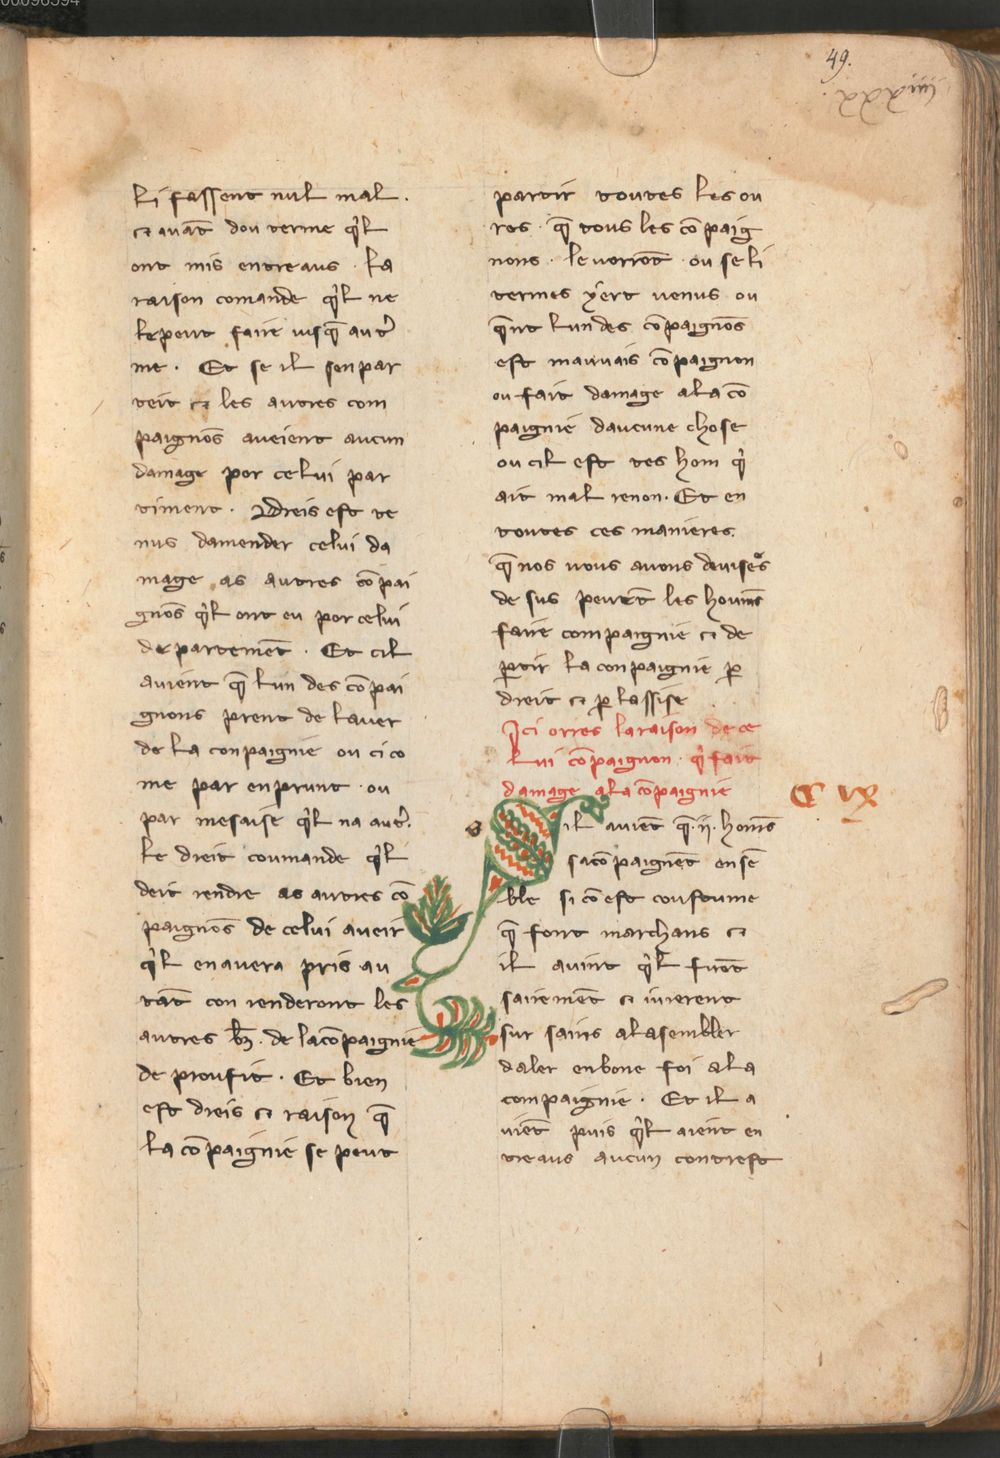 49.
li fassent nul mal .
⁊ auāt dou terme q̇l
ont mis entreaus . La
raison comande q̇l ne
lepeut faire iusq̄ au t͛
me . Et se il senpar
teit ⁊ les autres com
paignōs aueient aucun
damage por celui par
timent . Dreis est te
nus damender celui da
mage as autres cōpai
gnōs q̇l ont eu por celui
departemēt . Et cil
auient q̄ lun des cōpai
gnons prent de lauer
de la conpaignie ou ci co
me par enprunt . ou
par mesaise q̇l na aut͛.
Le dreit coumande q̇l
deit rendre as autres cō
paignōs de celui aueir
q̇l enauera pris au
tāt con renderont les
autres bz̄ . de lacōpaignie
de proufit . Et bien
est dreis ⁊ raison q̄
la cōpaignie se peut
partir toutes les ou
res . q̄ tous les cōpaig
nons . le vorrōt . ou se li
termes yert venus ou
q̄nt lun des cōpaignōs
est mauuais cōpaignon
ou fait damage ala cō
paignie daucune chose
ou cil est tes hom q̇
ait mal renon . Et en
toutes ces manieres .
q̄ nos vous auons deuises
de sus peuēt les homēs
faire compaignie ⁊ de
ꝑtir la conpaignie ꝑ
dreit ⁊ ꝑ lassise
Ici orres la raison de ce
lui cōpaignon . q̇ fait
damage ala cōpaignie
il auiēt q̄ .ij. homēs
sacōpaignēt ensē
ble si cō est coustume
q̄ font marchans ⁊
il auint q̇l furōt
sairemēt ⁊ iurerent
sur sains alasembler
daler enbone foi ala
compaignie . Et il a
uiēt puis q̇l aient en
treaus aucun contrest